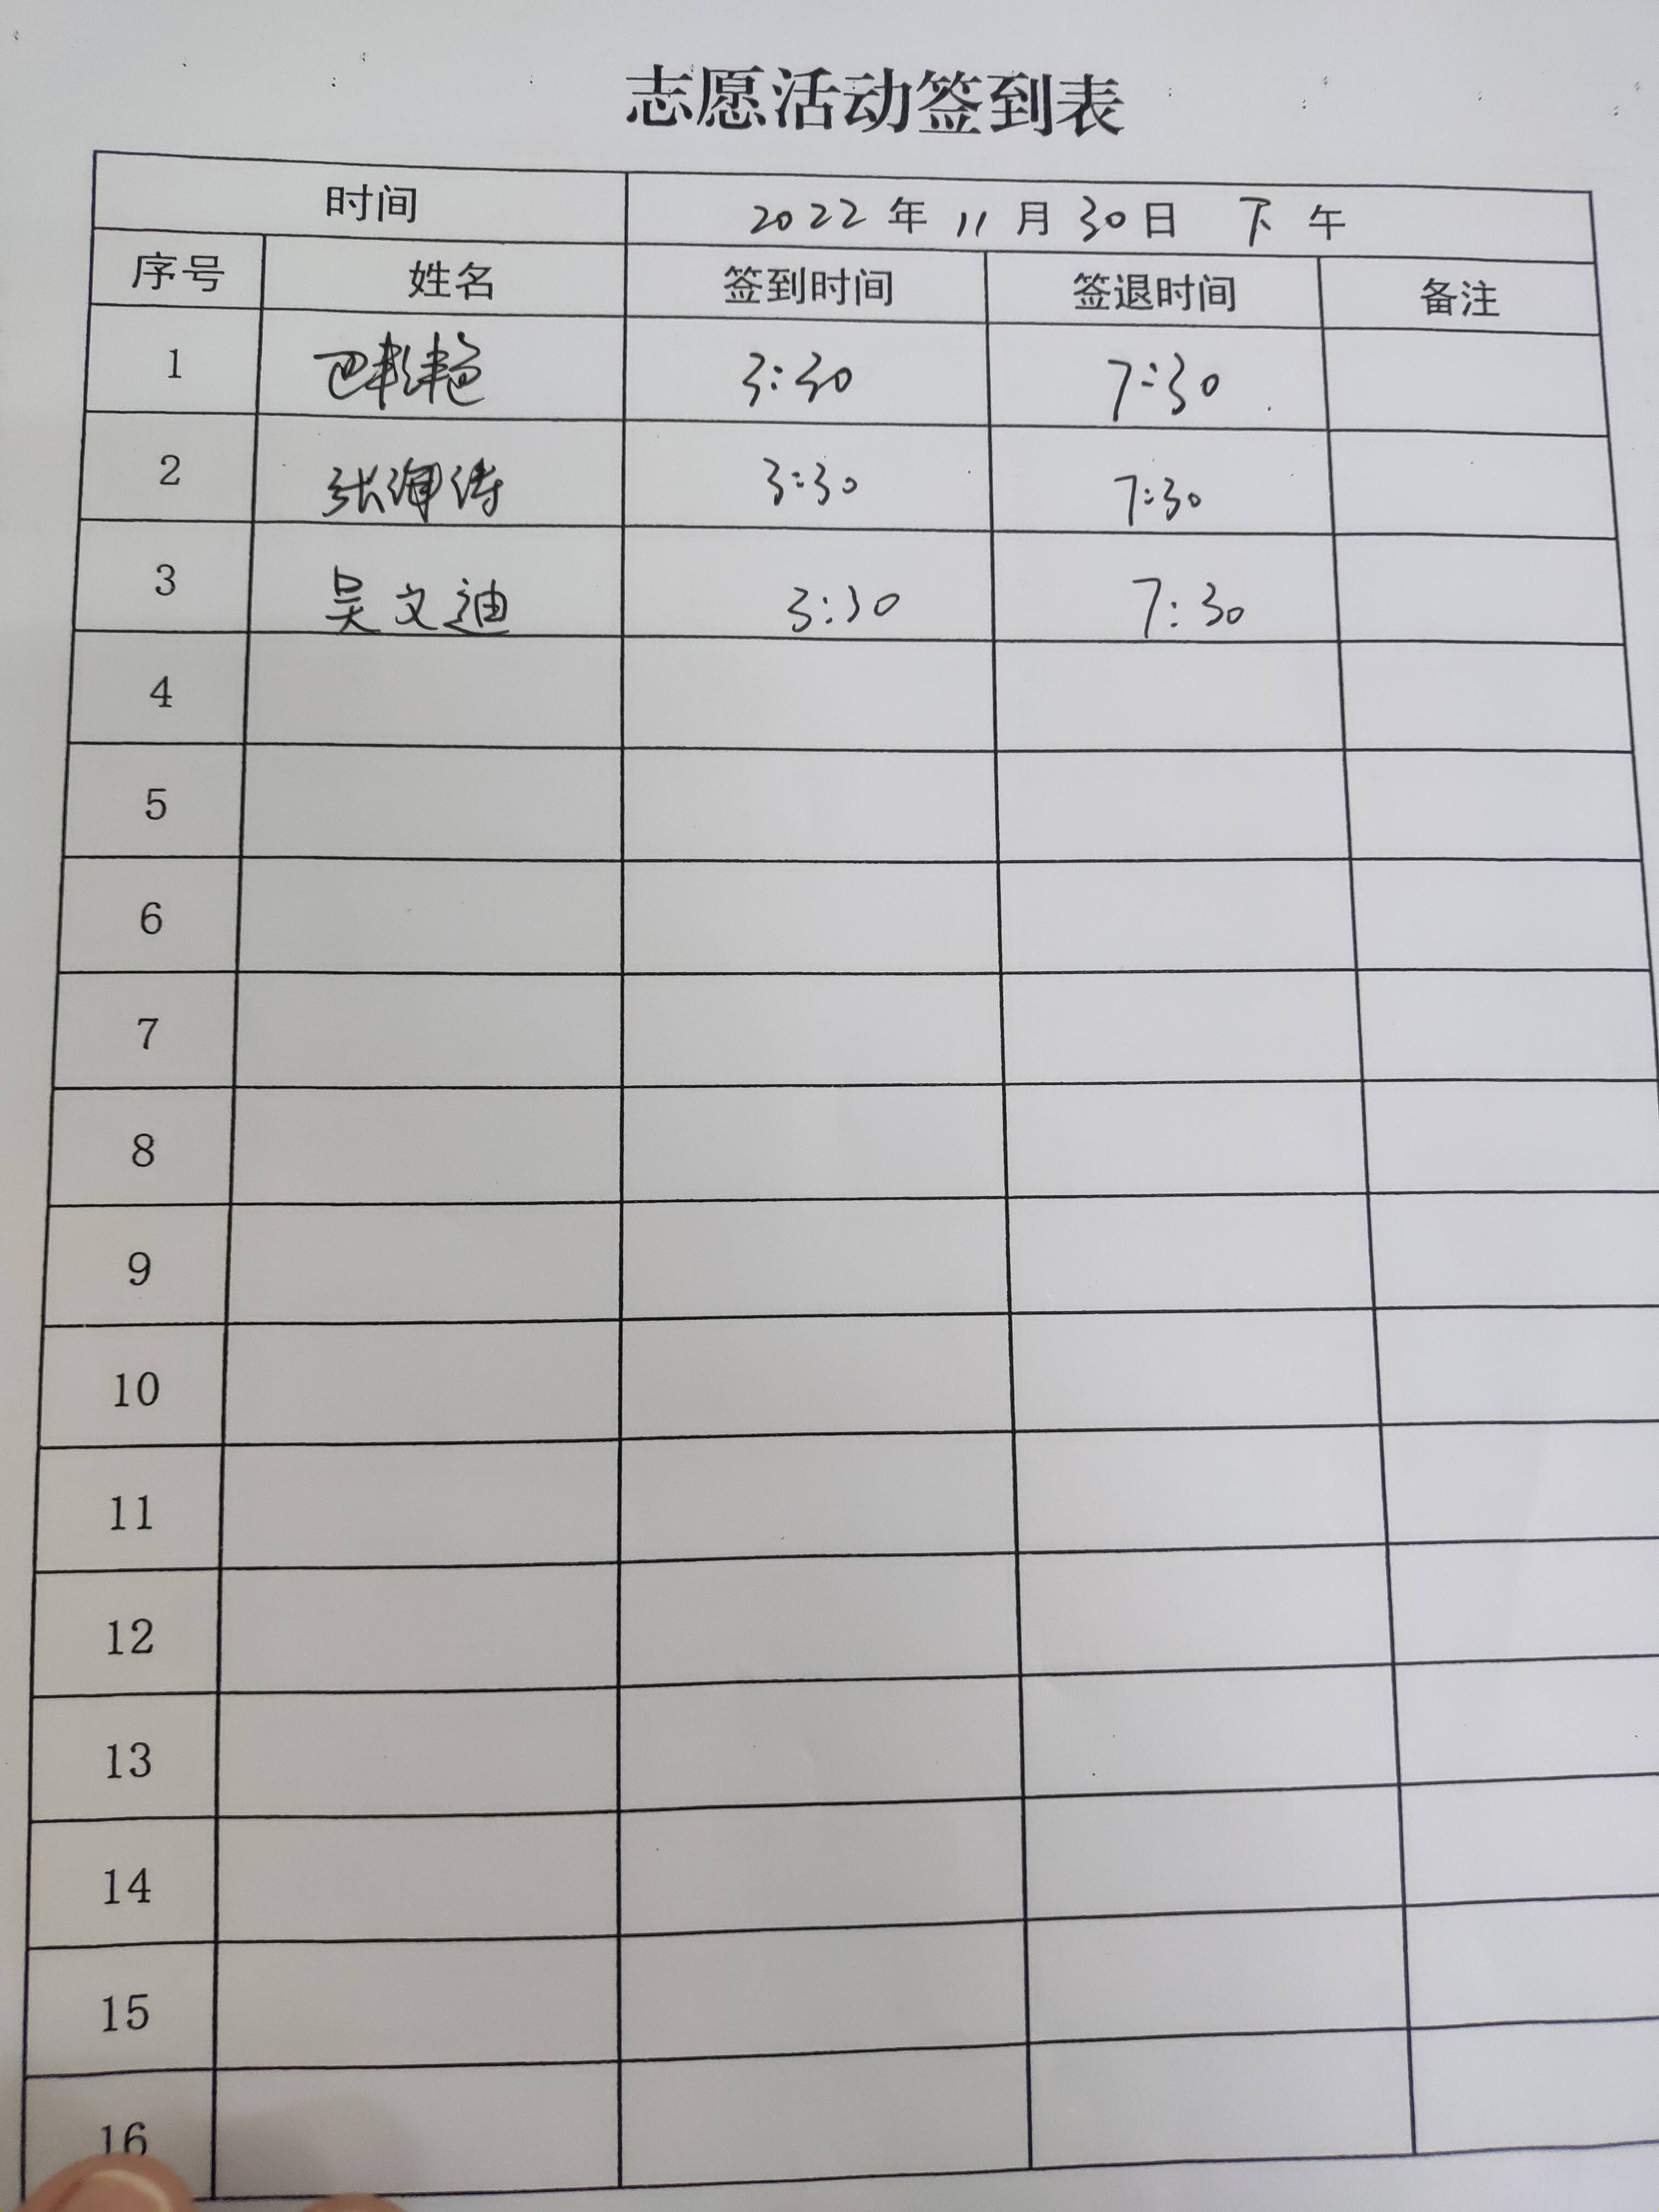 志愿活动签到表
时间 2022年11月30日 下午
序号 姓名 签到时间 签退时间 备注
1 3:30 7:30
2 张 涛 3:30 7:30
3 吴文迪 3:30 7:30
4
5
6
7
8
9
10
11
12
13
14
15
16